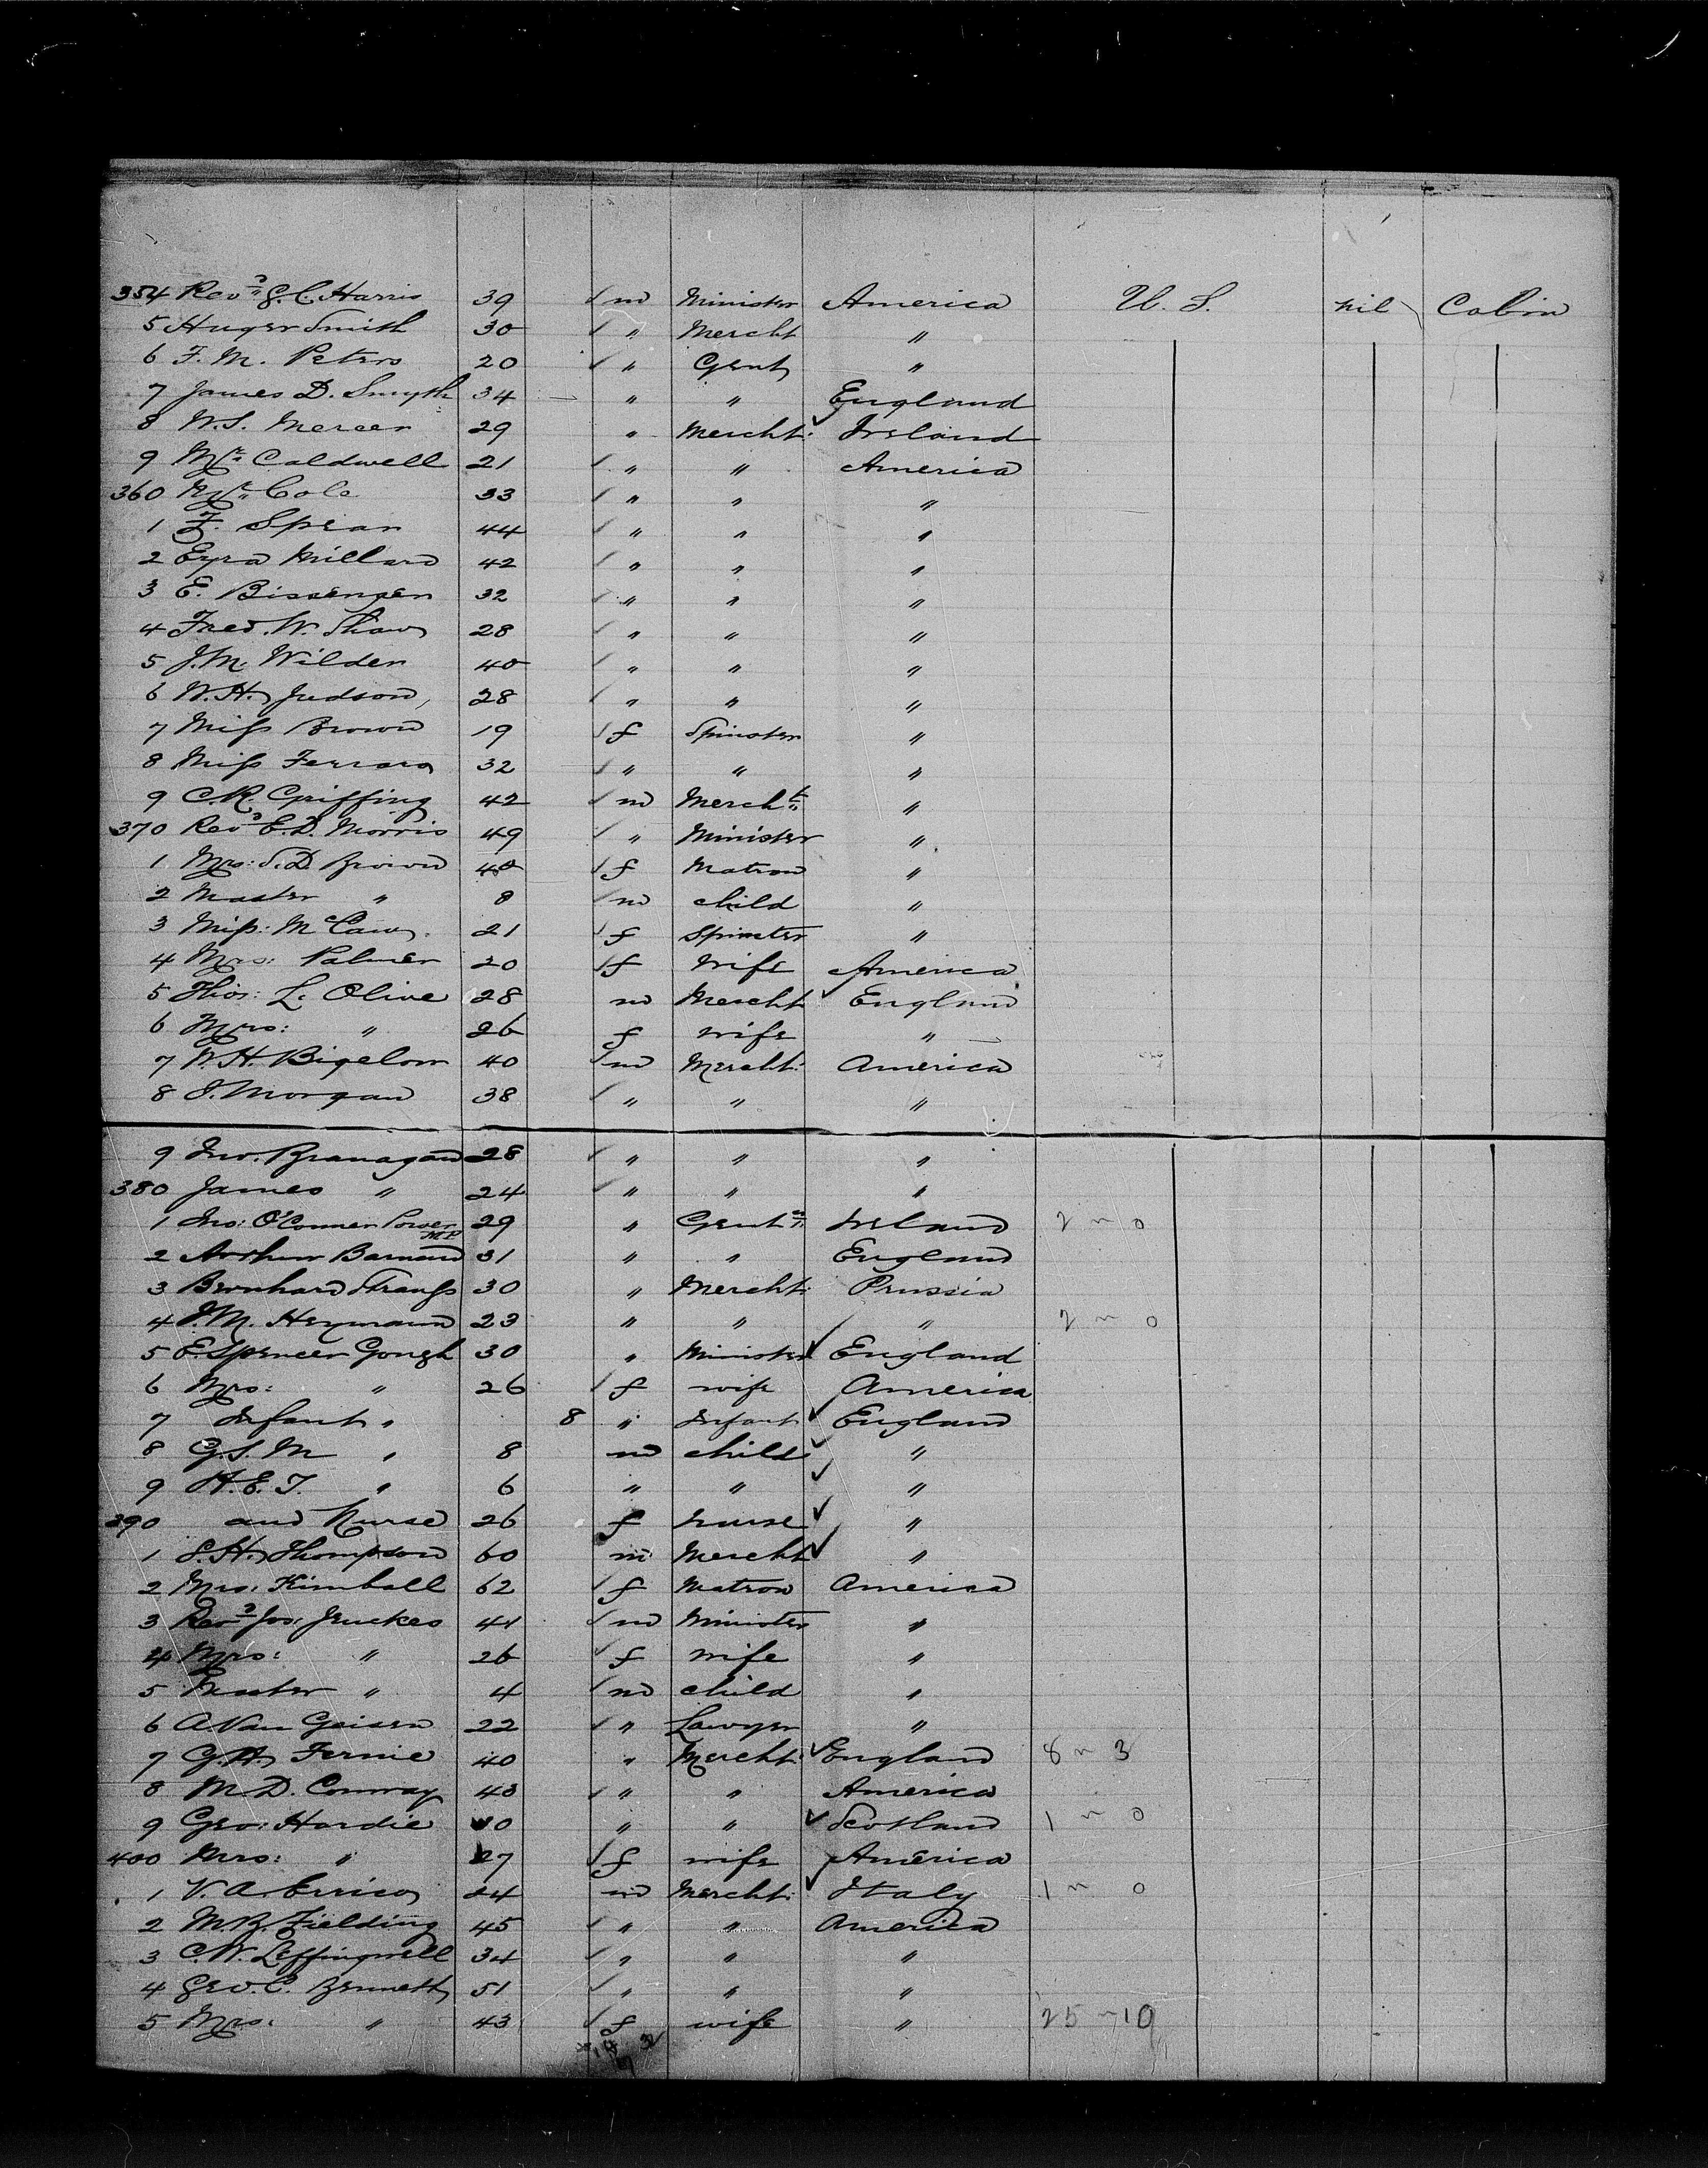 354 Revd. G. C. Harris 39 m Minister America U. S. nil Cabin
5 Huger Smith 30 " Mercht "
6 F. M. Peters 20 " Gent "
7 James D. Smyth 34 " " England
8 W. S. Mercer 29 " Mercht. Ireland
9 Mr. Caldwell 21 " " America
360 Mr. Cole 33 " " "
1 F. Spear 44 " " "
2 Ezra Millard 42 " " "
3 E. Bissenger 32 " " "
4 Fred. W. Shaw 28 " " "
5 J. M. Wilder 40 " " "
6 W. H. Judson 28 " " "
7 Miss Brown 19 f Spinster "
8 Miss Ferrara 32 " " "
9 C. R. Griffing 42 m Mercht. "
370 Revd. E. D. Morris 49 " Minister "
1 Mrs: S. D. Brown 40 f Matron "
2 Master " 8 m child "
3 Miss: McCaw 21 f Spinster "
4 Mrs: Palmer 20 f Wife America
5 Thos: L. Olive 28 m Mercht. England
6 Mrs: " 26 f wife "
7 W. H. Bigelow 40 m Mercht: America
8 J. Morgan 38 " " "
9 Jno. Branagan 28 " " "
380 James " 24 " " "
1 Jno: O'Conner Power MP 29 " Gentn. Ireland 2 ~ 0
2 Arthur Barnard 31 " " England
3 Bernhard Strauss 30 " Mercht: Prussia
4 J. M. Heymann 23 " " " 2 ~ 0
5 E. Spencer Gough 30 " Minister England
6 Mrs: " 26 f wife America
7 Infant " 8 " Infant England
8 G. S. M " 8 m child "
9 H. E. T. " 6 " " "
390 and Nurse 26 f nurse "
1 S. H. Thompson 60 m Mercht "
2 Mrs: Kimball 62 f Matron America
3 Revd. Jos: Jenckes 41 m Minister "
4 Mrs: " 26 f wife "
5 Master " 4 m child "
6 A Van Geisen 22 " Lawyer "
7 G. H. Fernie 40 " Mercht: England 8 ~ 3
8 M. D. Conway 43 " " America
9 Geo: Hardie 30 " " Scotland 1 ~ 0
400 Mrs: " 27 f wife America
1 V. A. Errico 24 m Mercht: Italy 1 ~ 0
2 M. B. Fielding 45 " " America
3 C. W. Leffingwell 34 " " "
4 Geo. C. Bennett 51 " " "
5 Mrs: " 43 f wife " 25 ~ 10